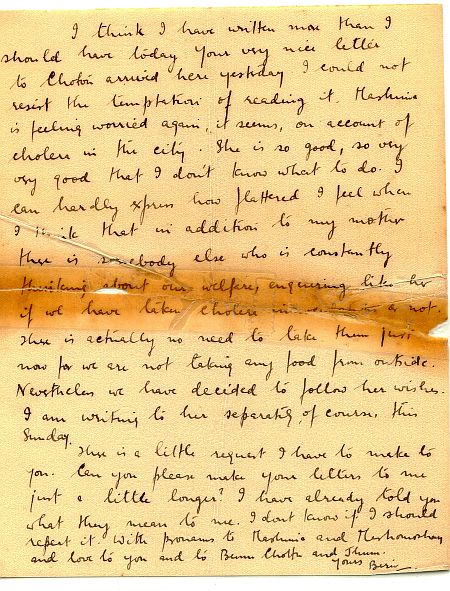 I think I have written more than I
should have today Your very nice letter
to Choton arrived here yestday I could not
resist the temptation of reading it. Mashima
is feeling worried again, it seems, on account of
cholera in the city. She is so good, so very
very good that I don't know what to do. I
can hardly express how flattered I feel when
I think that in addition to my mother
there is somebody else who is constantly
thinking about our welfare, enquiring like her
if we have taken cholera or not.
There is actually no need to take them just
now for we are not taking any food from outside.
Nevertheless we have decided to follow her wishes.
I am writing to her separately, of course, this
Sunday.
There is a little request I have to make to
you. Can you please make your letters to me
just a little longer? I have already told you
what they mean to me. I dont know if I should
repeat it. With pronams to Mashima and
and love to you and to Choton and
Yours